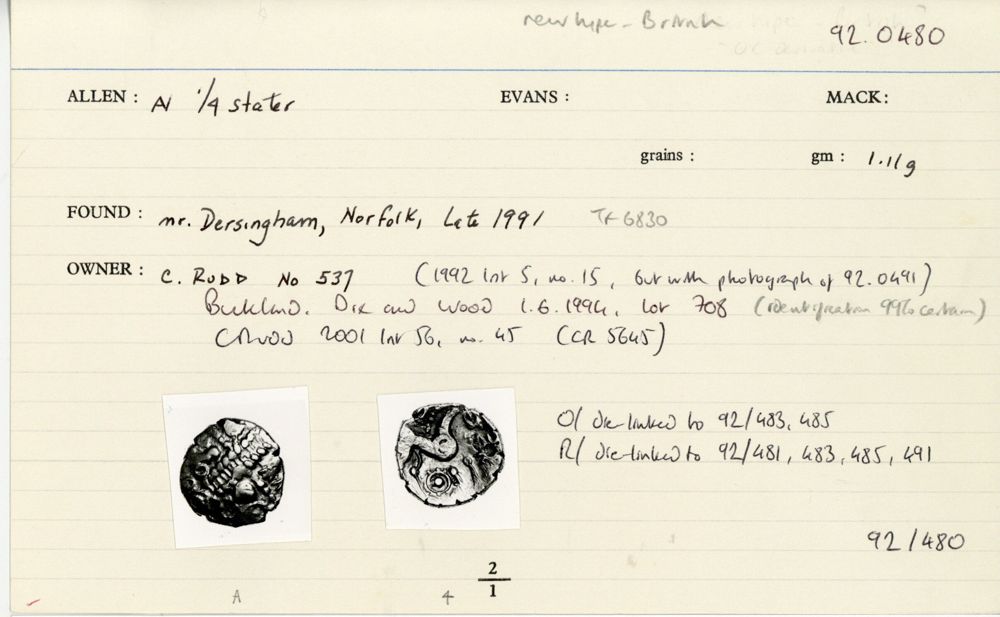 new type - British
92.0480
ALLEN : AV 1/4 stater EVANS : MACK:
grains : gm : 1.11g
FOUND : nr. Dersingham, Norfolk, Late 1991 TF 6830
OWNER : C. RUDD No 537 (1992 list 5, no. 15, but with photograph of 92.0491)
Buckland. Dix and Wood 1.6.1994, lot 708 (identification 99% certain)
CRudd 2001 list 56, no. 45 (CR 5645)
O/ die-linked to 92/483, 485
R/ die-linked to 92/481, 483, 485, 491
92/480
2
1
A 4